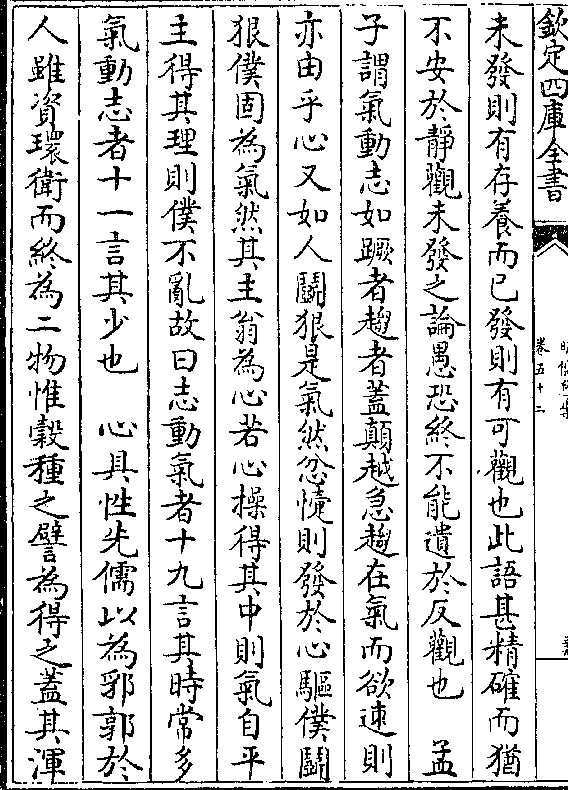 欽定四庫全書
卷五十二
未發則有存養而已發則有可觀也此語甚精確而猶
不安於靜觀未發之論愚恐終不能遺於反觀也　孟
子謂氣動志如蹶者趨者蓋顛越急趨在氣而欲速則
亦由乎心又如人鬬狠是氣然忿懥則發於心驅僕鬬
狠僕固為氣然其主翁為心若心操得其中則氣自平
主得其理則僕不亂故曰志動氣者十九言其時常多
氣動志者十一言其少也　心具性先儒以為郛郭於
人雖資環衛而終為二物惟穀種之譬為得之蓋其渾